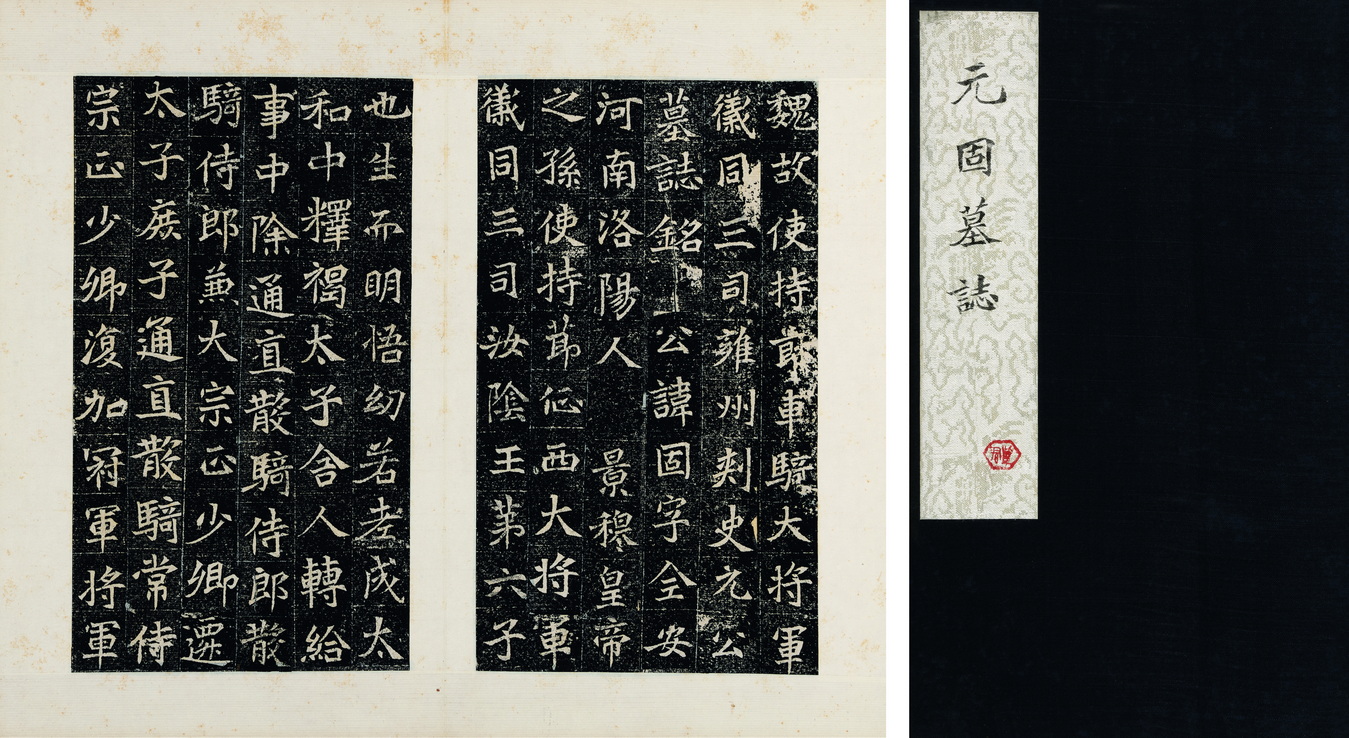 元固墓誌
魏故使持節車騎大将軍
儀同三司雍州刺史元公
墓誌銘 公諱固字全安
河南洛陽人 景穆皇帝
之孫使持節征西大将軍
儀同三司汝陰王第六子
也生而明悟幼若老成太
和中釋褐太子舍人轉給
事中除通直散騎侍郎散
騎侍郎兼大宗正少卿遷
太子庶子通直散騎常侍
宗正少卿復加冠軍将軍